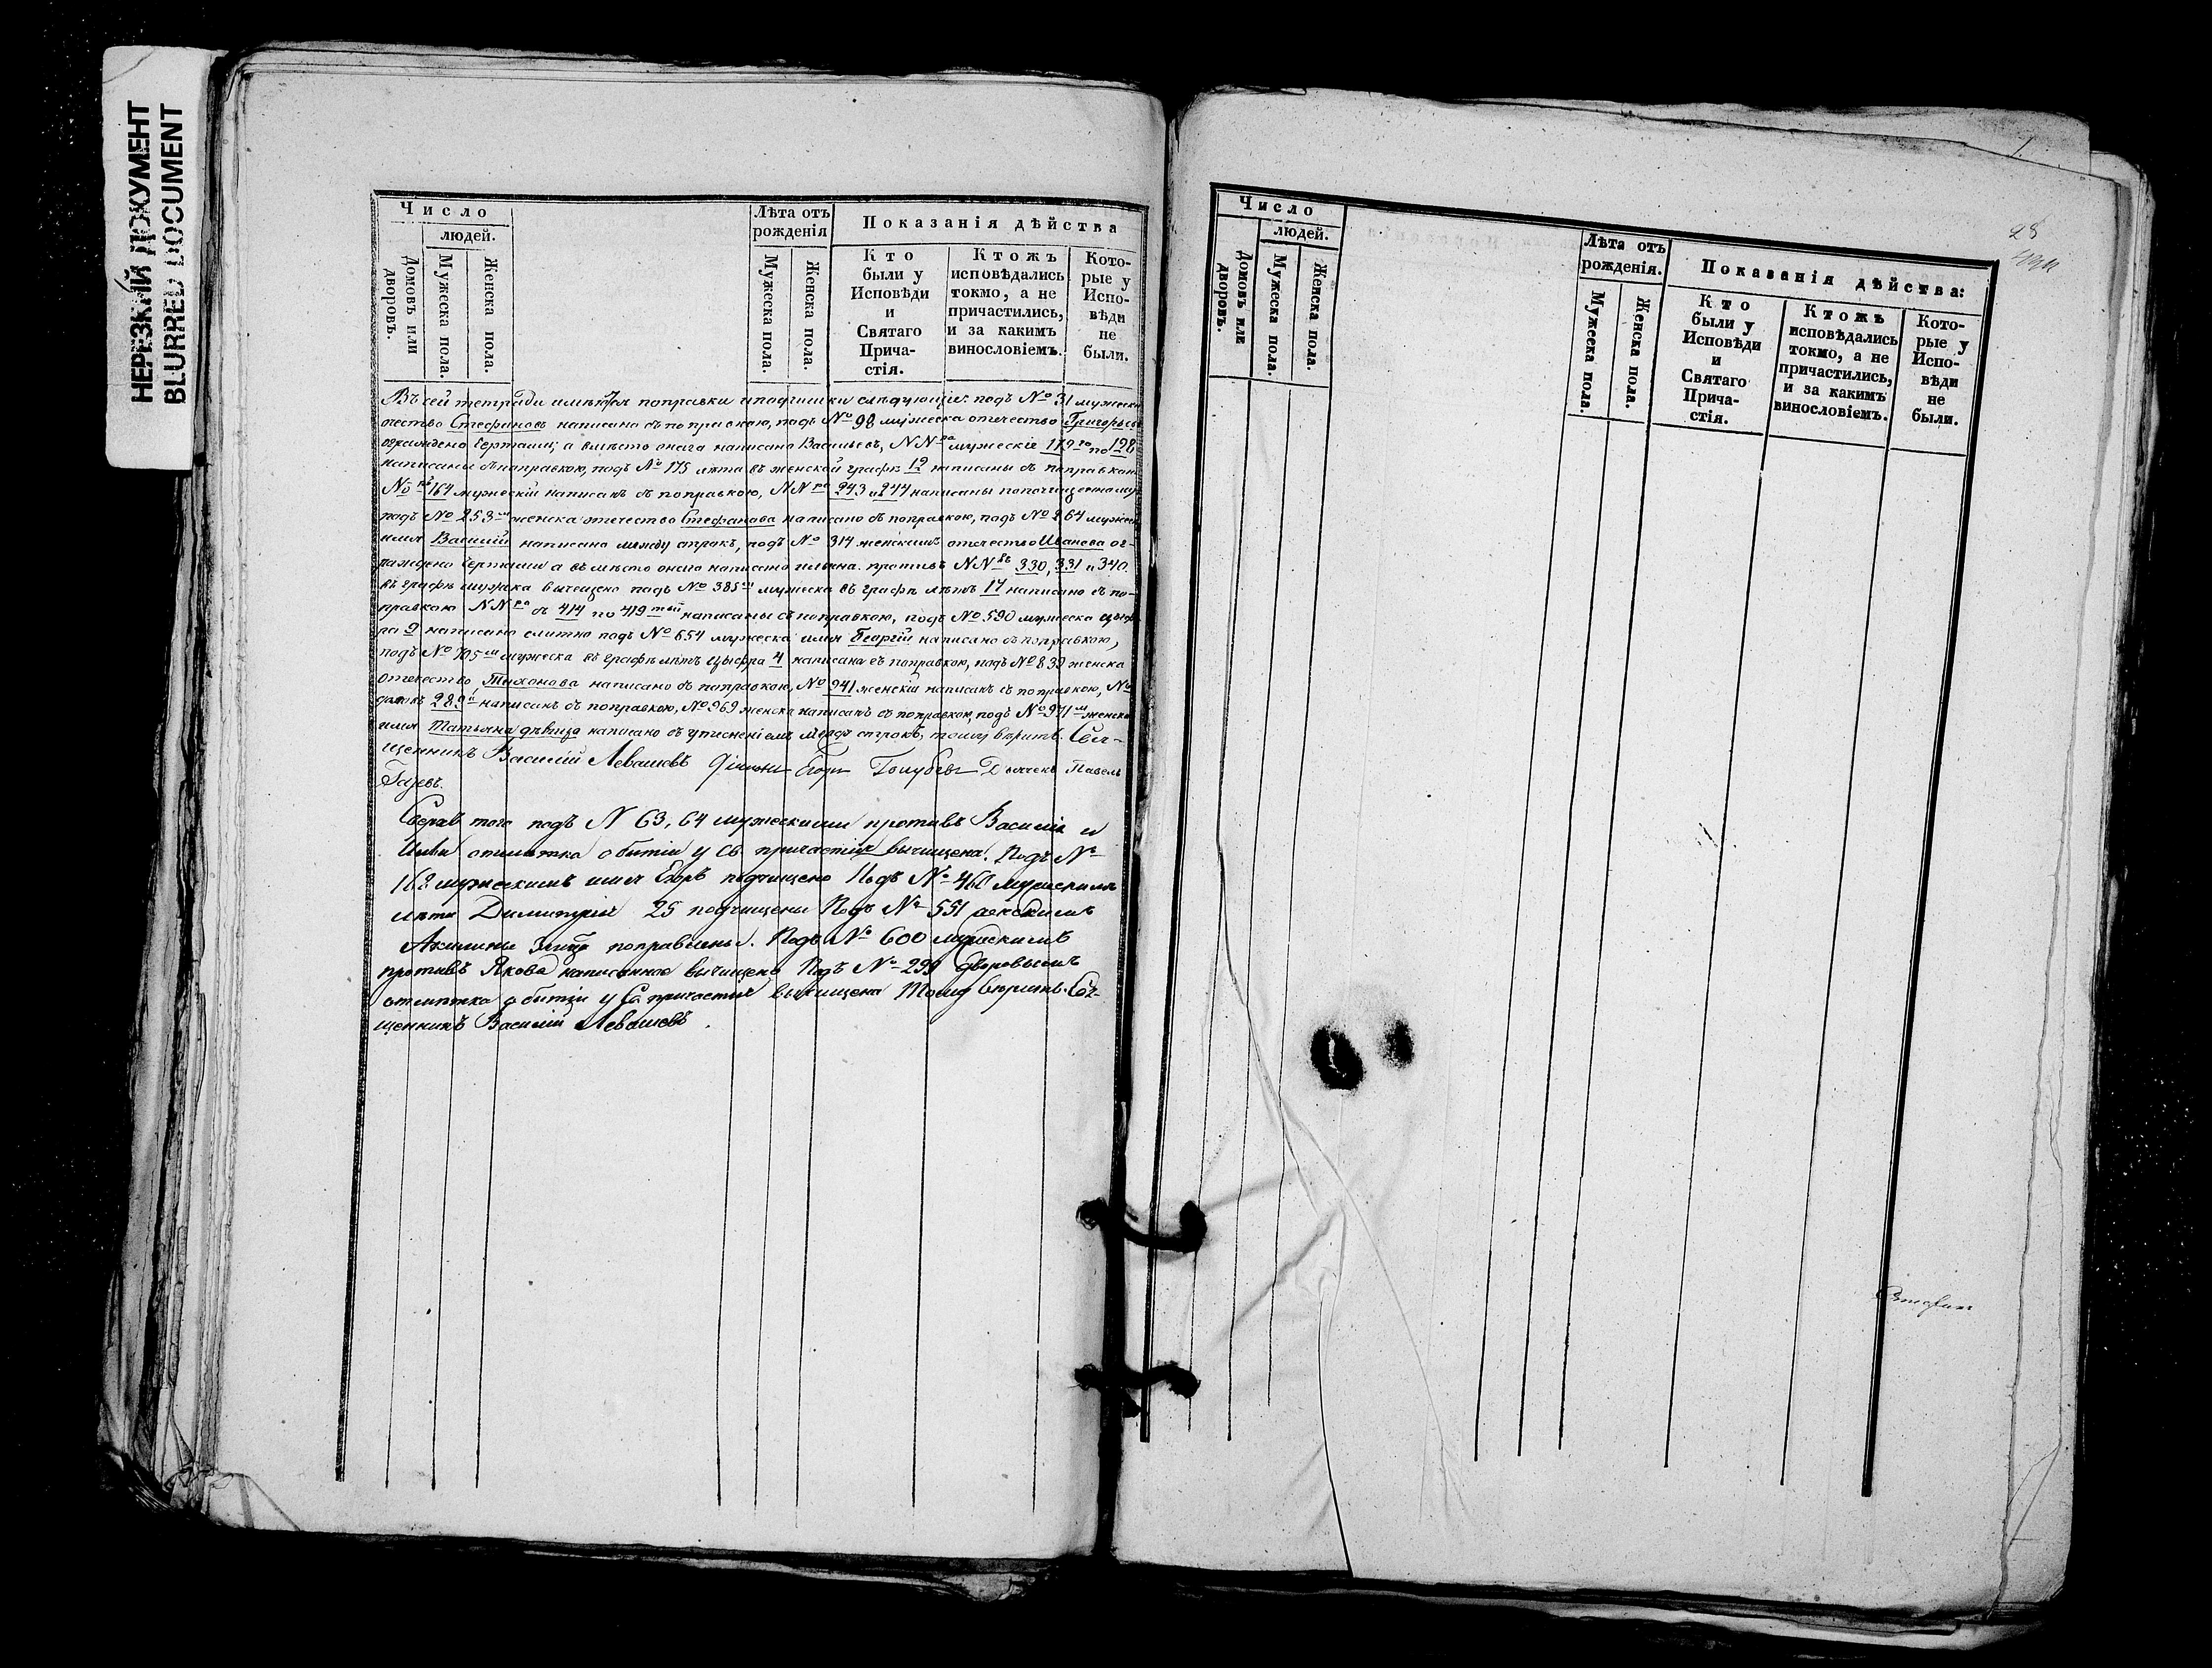 НЕРЕЗКИЙ ДОКУМЕНТ
BLURRED DOCUMENT
Число
людей.
Домовъ или дворовъ.
Мужеска пола.
Женска пола.
Лѣта отъ рожденія
Мужеска пола.
Женска пола.
Показанія дѣйства
Кто были у Исповѣди и Святаго Прича-стія.
Ктожъ исповѣдались токмо, а не причастились, и за какимъ винословіемъ.
Кото-рые у Испо-вѣди не были.
Въ сей тетради имѣются поправки и подчистки слѣдующія: подъ № 31 мужеска
отчество Стефановъ написано съ поправкою, подъ № 98 мужеска отечество Григорьевъ
ограждено чертами; а вмѣсто онаго написано Васильевъ, NN мужескіе 119 по 128
написаны съ поправкою, подъ № 175 лѣта въ женской графѣ 12 написаны съ поправкою
№ 164 мужескій написанъ съ поправкою, NN 243 и 244 написаны по почищенному
подъ № 253 женска отечество Стефанова написано съ поправкою, подъ № 264 мужеск
имя Василій написано между строкъ, подъ № 314 женскимъ отечество Иванова ог-
раждено чертами а въ мѣсто онаго написано противъ NN 330, 331 и 340.
въ графѣ вычищено подъ № 385 мужеска въ графѣ лѣтъ 17 написано съ по-
правкою NN съ 414 по 419 написаны съ поправкою, подъ № 590 мужеска цыф-
ра 9 написана слитно подъ № 654 мужеска имя Георгій написано съ поправкою,
подъ № 705 мужеска въ графѣ лѣтъ цыфра 4 написана съ поправкою, подъ № 839 женска
отечество Тихонова написано съ поправкою, № 941 женскій написанъ съ поправкою, №
289 написанъ съ поправкою, № 969 женска написанъ съ поправкою, подъ № 971 женска
имя Татьяна дѣвица написано съ утисненіемъ между строкъ, тому вѣрить. Свя-
щенникъ Василій Левашевъ Егоръ Голубевъ Дьячекъ Павелъ
Сверхъ того подъ N 63, 64 мужескими противъ Василія и
отмѣтка о бытіи у Св. причастія вычищена. Подъ №
162 мужескимъ имя Егоръ подчищено Подъ № 460 мужескимъ
лѣта Димитрія 25 подчищены Подъ № 551 женскимъ
Акилины поправлены. Подъ № 600 мужескимъ
противъ Якова написанное вычищено Подъ № 299 дворовымъ
отмѣтка о бытіи у Св. причастія вычищена Тому вѣрить. Свя-
щенникъ Василій Левашевъ.
Число
людей.
Домовъ или дворовъ.
Мужеска пола.
Женска пола.
Лѣта отъ рожденія.
Мужеска пола.
Женска пола.
Показанія дѣйства:
Кто были у Исповѣди и Святаго Прича-стія.
Ктожъ исповѣдались токмо, а не причастились, и за какимъ винословіемъ.
Кото-рые у Испо-вѣди не были.
28